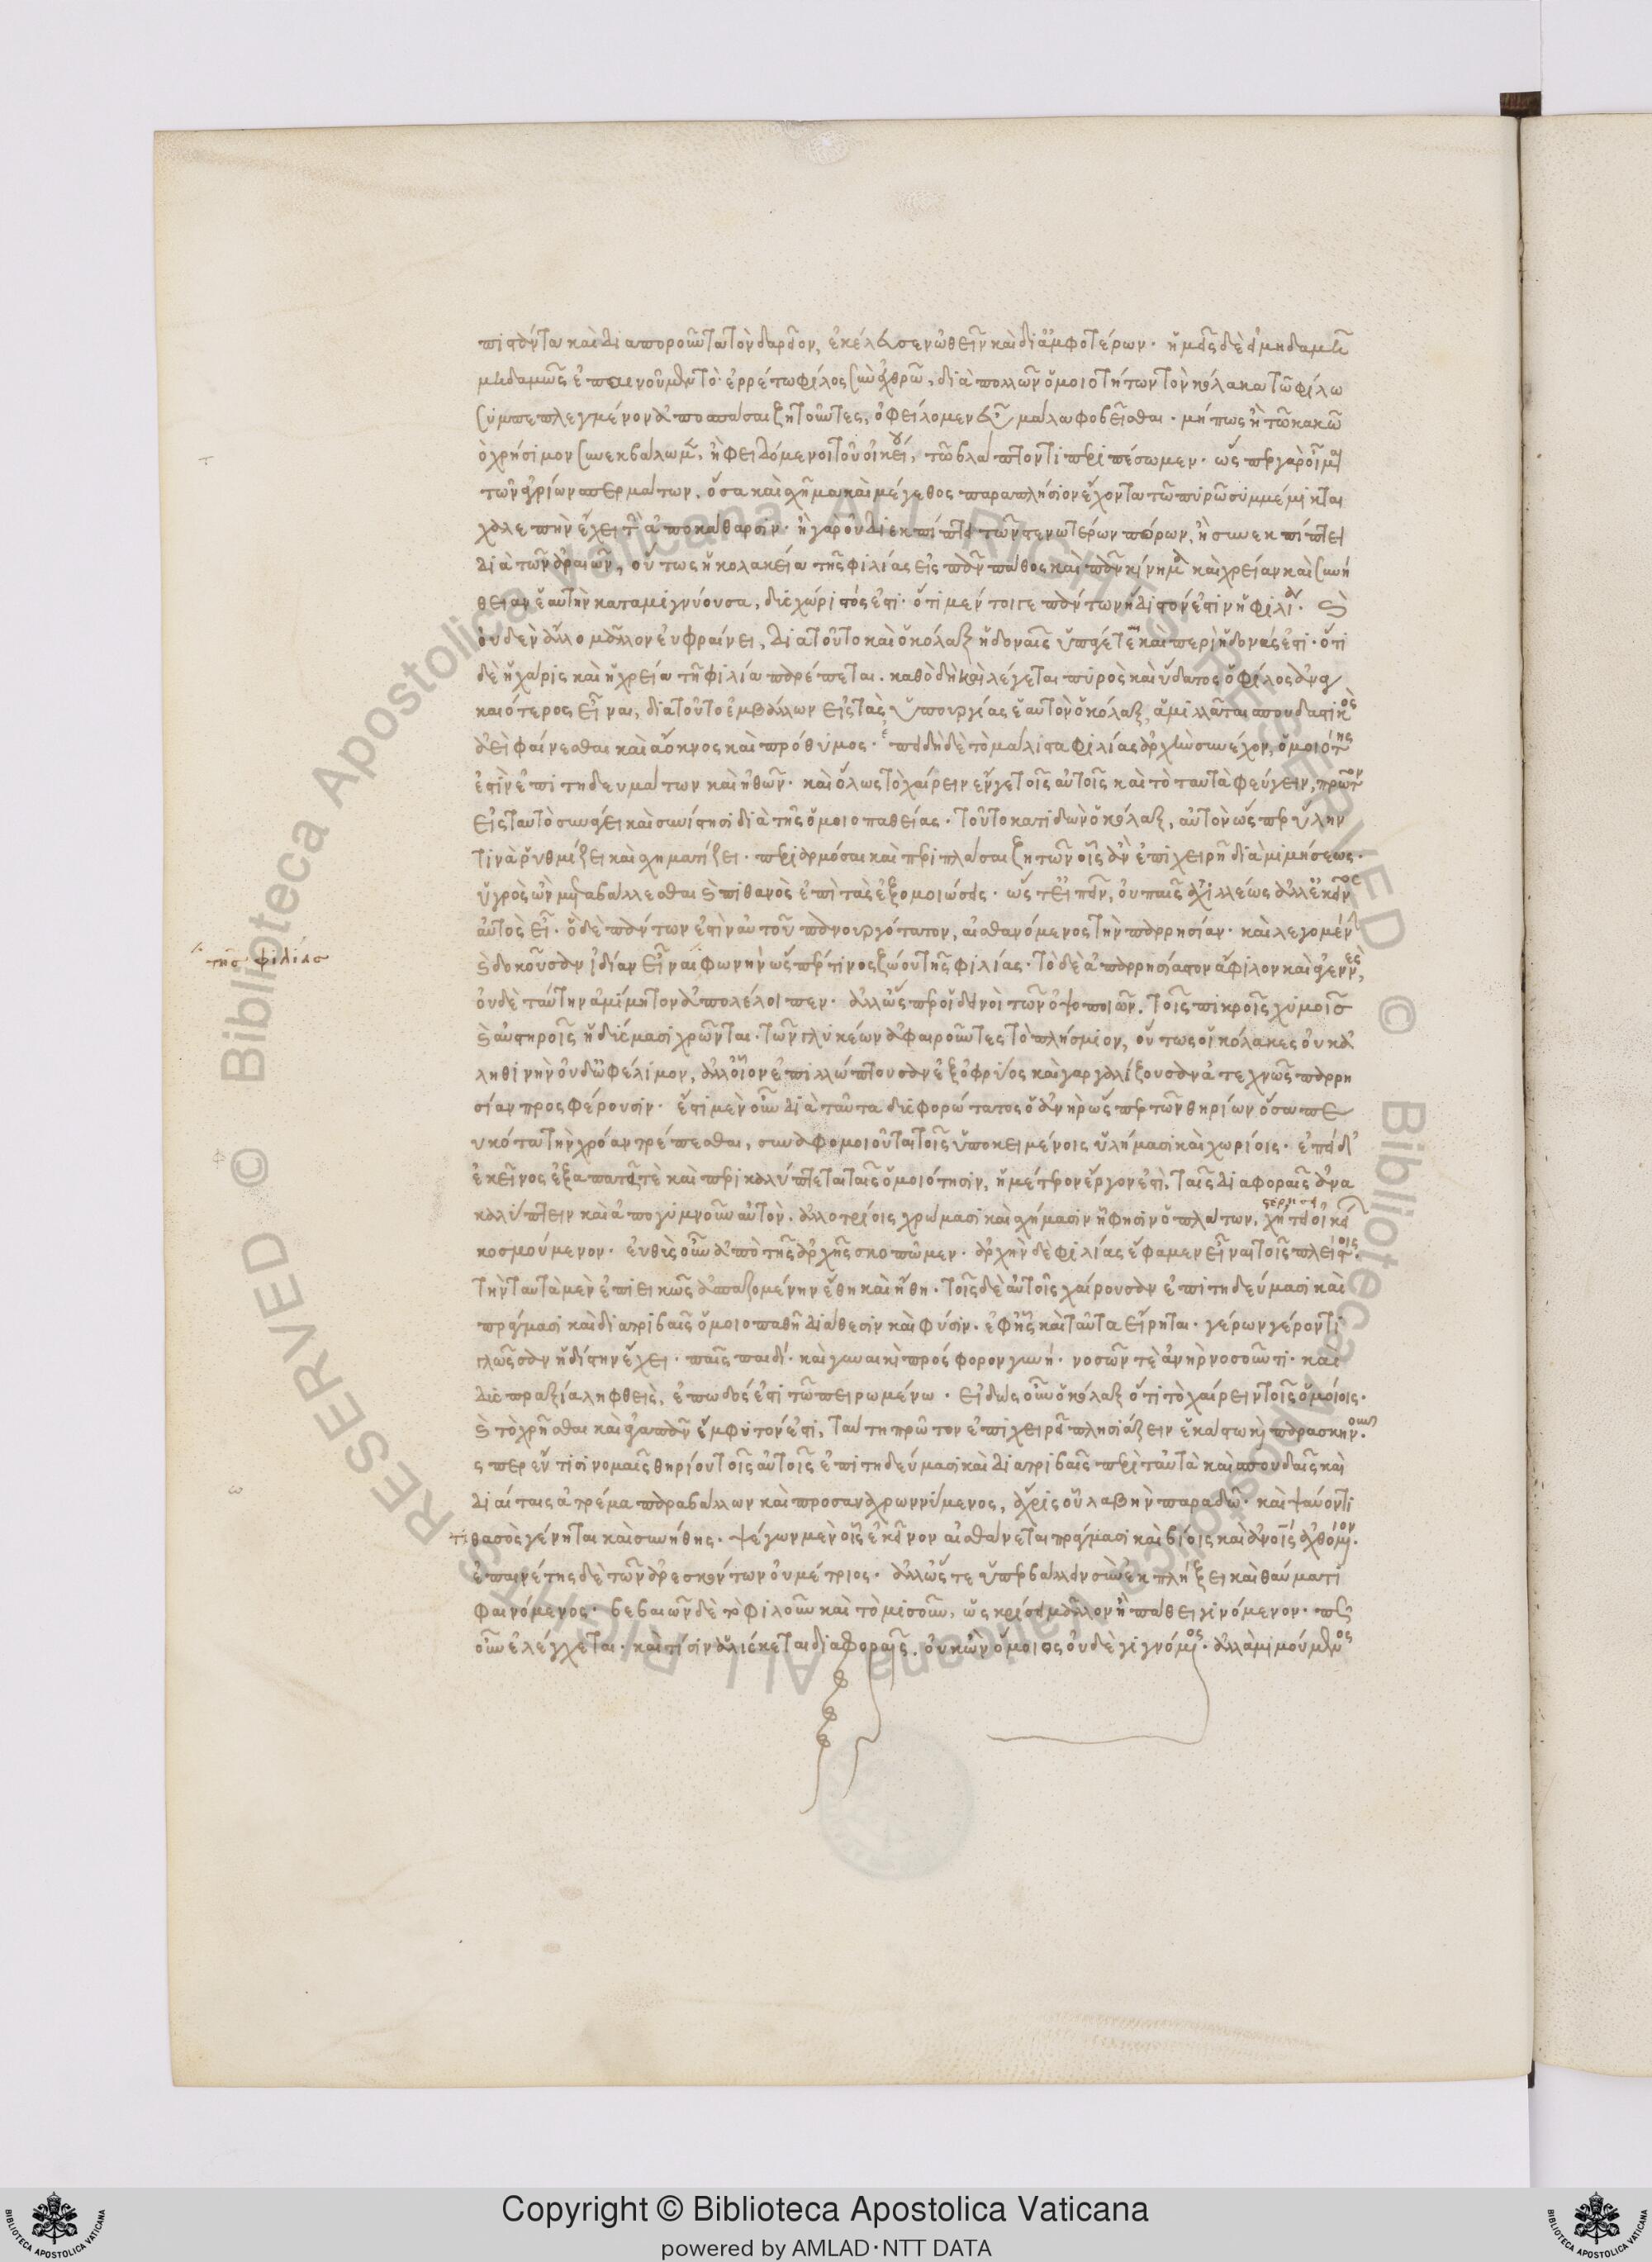 πεσόντα καὶ διαποροῦντα τὸν δαρεῖον, ἐκέλευσεν ὠθεῖν καὶ δι' ἀμφοτέρων. ἡμεῖς δὲ εἰ μηδαμῆ
μηδαμῶς ἐπαινοῦμεν τό. ἐρρέτω φίλος σὺν ἐχθρῶ, διὰ πολλῶν ὁμοιοτήτων τὸν κόλακα τῶ φίλω
συμπεπλεγμένον ἀποσπάσαι ζητοῦντες, ὀφείλομεν εὖ μάλα φοβεῖσθαι. μή πως ἢ τῶ κακῶ
τὸ χρήσιμον συνεκβάλωμεν, ἢ φειδόμενοι τοῦ οἰκείου, τῶ βλάπτοντι περιπέσωμεν. ὥσπερ γὰρ οἶμαι
τῶν ἀγρίων σπερμάτων, ὅσα καὶ σχῆμα καὶ μέγεθος παραπλήσιον ἔχοντα τῶ πυρῶ συμμέμικται
χαλεπὴν ἔχει τὴν ἀποκάθαρσιν. ἢ γὰρ οὐ διεκπίπτει τῶν στενωτέρων πόρων, ἢ συνεκπίπτει
διὰ τῶν ἀραιῶν, οὕτως ἡ κολακεία τῆς φιλίας εἰς πᾶν πάθος καὶ πᾶν κίνημα καὶ χρείαν καὶ συνή
θειαν ἑαυτὴν καταμιγνύουσα, δυσχώριστός ἐστι. ὅτι μέν τοι γε πάντων ἥδιστόν ἐστιν ἡ φιλία. καὶ
οὐδὲν ἄλλο μᾶλλον εὐφραίνει, διὰ τοῦτο καὶ ὁ κόλαξ ἡδοναῖς ὑπάγεται καὶ περὶ ἡδονάς ἐστι. ὅτι
δὲ ἡ χάρις καὶ ἡ χρεία τῆ φιλία παρέπεται. καθὸ δὴ καὶ λέγεται πυρὸς καὶ ὕδατος ὁ φίλος ἀναγ
καιότερος εἶναι, διὰ τοῦτο ἐμβάλλων εἰς τὰς ὑπουργίας ἑαυτὸν ὁ κόλαξ, ἁμιλλᾶται σπουδαστικὸς
ἀεὶ φαίνεσθαι καὶ ἄοκνος καὶ πρόθυμος. ἐπειδὴ δὲ τὸ μάλιστα φιλίας ἀρχὴν συνέχον, ὁμοιότης
ἐστὶν ἐπιτηδευμάτων καὶ ἠθῶν. καὶ ὅλως τὸ χαίρειν ἕνγε τοῖς αὐτοῖς καὶ τὸ ταυτὰ φεύγειν, πρῶτον
εἰς ταυτὸ συνάγει καὶ συνίστησι διὰ τῆς ὁμοιοπαθείας. τοῦτο κατιδὼν ὁ κόλαξ, αὑτὸν ὥσπερ ὕλην
τινὰ ῥυθμίζει καὶ σχηματίζει. περιαρμόσαι καὶ περιπλάσαι ζητῶν οἷς ἂν ἐπιχειρῆ διὰ μιμήσεως.
ὑγρὸς ὢν μεταβάλλεσθαι καὶ πιθανὸς ἐπὶ τὰς ἐξομοιώσεις. ὥς τε εἰπεῖν, οὐ παῖς ἀχιλλέως ἀλλ' ἐκεῖνος
αὐτὸς εἶ. ὃ δὲ πάντων ἐστὶν αὐτοῦ πανουργότατον, αἰσθανόμενος τὴν παρρησίαν. καὶ λεγομένην
καὶ δοκοῦσαν ἰδίαν εἶναι φωνὴν ὥσπερ τινος ζώου τῆς φιλίας. τὸ δὲ ἀπαρρησίαστον ἄφιλον καὶ ἀγεννὲς,
τῆς φιλίας
οὐδὲ ταύτην ἀμίμητον ἀπολέλοιπεν. ἀλλ' ὥσπερ οἱ δεινοὶ τῶν ὀψοποιῶν. τοῖς πικροῖς χυμοῖς
καὶ αὐστηροῖς ἡδύσμασι χρῶνται. τῶν γλυκέων ἀφαιροῦντες τὸ πλήσμιον, οὕτως οἱ κόλακες οὐκ ἀ
ληθινὴν οὐδ' ὠφέλιμον, ἀλλ' οἷον ἐπιλλώπτουσαν ἐξ ὀφρύος καὶ γαργαλίζουσαν ἀτεχνῶς παρρη
σίαν προσφέρουσιν. ἔστι μὲν οὖν διὰ ταῦτα δυσφορώτατος ὁ ἀνὴρ ὥσπερ τῶν θηρίων ὅσα πε
υκότα τὴν χρόαν τρέπεσθαι, συναφομοιοῦται τοῖς ὑποκειμένοις ὑλήμασι καὶ χωρίοις. ἐπεὶ δ'
ἐκεῖνος ἐξαπατᾶ τὲ καὶ περικαλύπτεται ταῖς ὁμοιότησιν, ἡμέτερον ἔργον ἐστὶ, ταῖς διαφοραῖς ἀνα
καλύπτειν καὶ ἀπογυμνοῦν αὐτόν. ἀλλοτρίοις χρώμασι καὶ σχήμασιν ἧ φησιν ὁ πλάτων, χήτει οἰκεί
κοσμούμενον. εὐθὺς οὖν ἀπὸ τῆς ἀρχῆς σκοπῶμεν. ἀρχὴν δὲ φιλίας ἔφαμεν εἶναι τοῖς πλείστοις.
τὴν ταυτὰ μὲν ἐπιεικῶς ἀσπαζομένην ἔθη καὶ ἤθη. τοῖς δὲ αὐτοῖς χαίρουσαν ἐπιτηδεύμασι καὶ
πράγμασι καὶ διατριβαῖς ὁμοιοπαθῆ διάθεσιν καὶ φύσιν. ἐφ' ἧς καὶ ταῦτα εἴρηται. γέρων γέροντι
γλῶσσαν ἡδίστην ἔχει. παῖς παιδί. καὶ γυναικὶ πρόσφορον γυνή. νοσῶν τὲ ἀνὴρ νοσοῦντι. καὶ
δυσπραξία ληφθεὶς, ἐπωδός ἐστι τῶ πειρωμένω. εἰδὼς οὖν ὁ κόλαξ ὅτι τὸ χαίρειν τοῖς ὁμοίοις.
καὶ τὸ χρῆσθαι καὶ ἀγαπᾶν ἔμφυτόν ἐστι, ταύτη πρῶτον ἐπιχειρεῖ πλησιάζειν ἑκάστω καὶ παρασκηνοῦν.
ςπερ ἔν τισι νομαῖς θηρίου τοῖς αὐτοῖς ἐπιτηδεύμασι καὶ διατριβαῖς περὶ ταὐτὰ καὶ σπουδαῖς καὶ
διαίταις ἀτρέμα παραβάλλων καὶ προσαναχρωννύμενος, ἄχρις οὗ λαβὴν παραδῶ. καὶ ψαύοντι
τιθασὸς γένηται καὶ συνήθης. ψέγων μὲν οἷς ἐκεῖνον αἰσθάνεται πράγμασι καὶ βίοις καὶ ἀνοῖς ἀχθόμενον.
ἐπαινέτης δὲ τῶν ἀρεσκόντων οὐ μέτριος. ἀλλ' ὥς τε ὑπερβάλλειν σὺν ἐκπλήξει καὶ θαύματι
φαινόμενος. βεβαιῶν δὲ τὸ φιλοῦν καὶ τὸ μισοῦν, ὡς κρίσει μᾶλλον ἢ πάθει γινόμενον. πῶς
οὖν ἐλέγχεται. καὶ τίσιν ἁλίσκεται διαφοραῖς. οὐκ ὢν ὅμοιος οὐδὲ γιγνόμενος. ἀλλὰ μιμούμενος
Copyright © Biblioteca Apostolica Vaticana
powered by AMLAD·NTT DATA